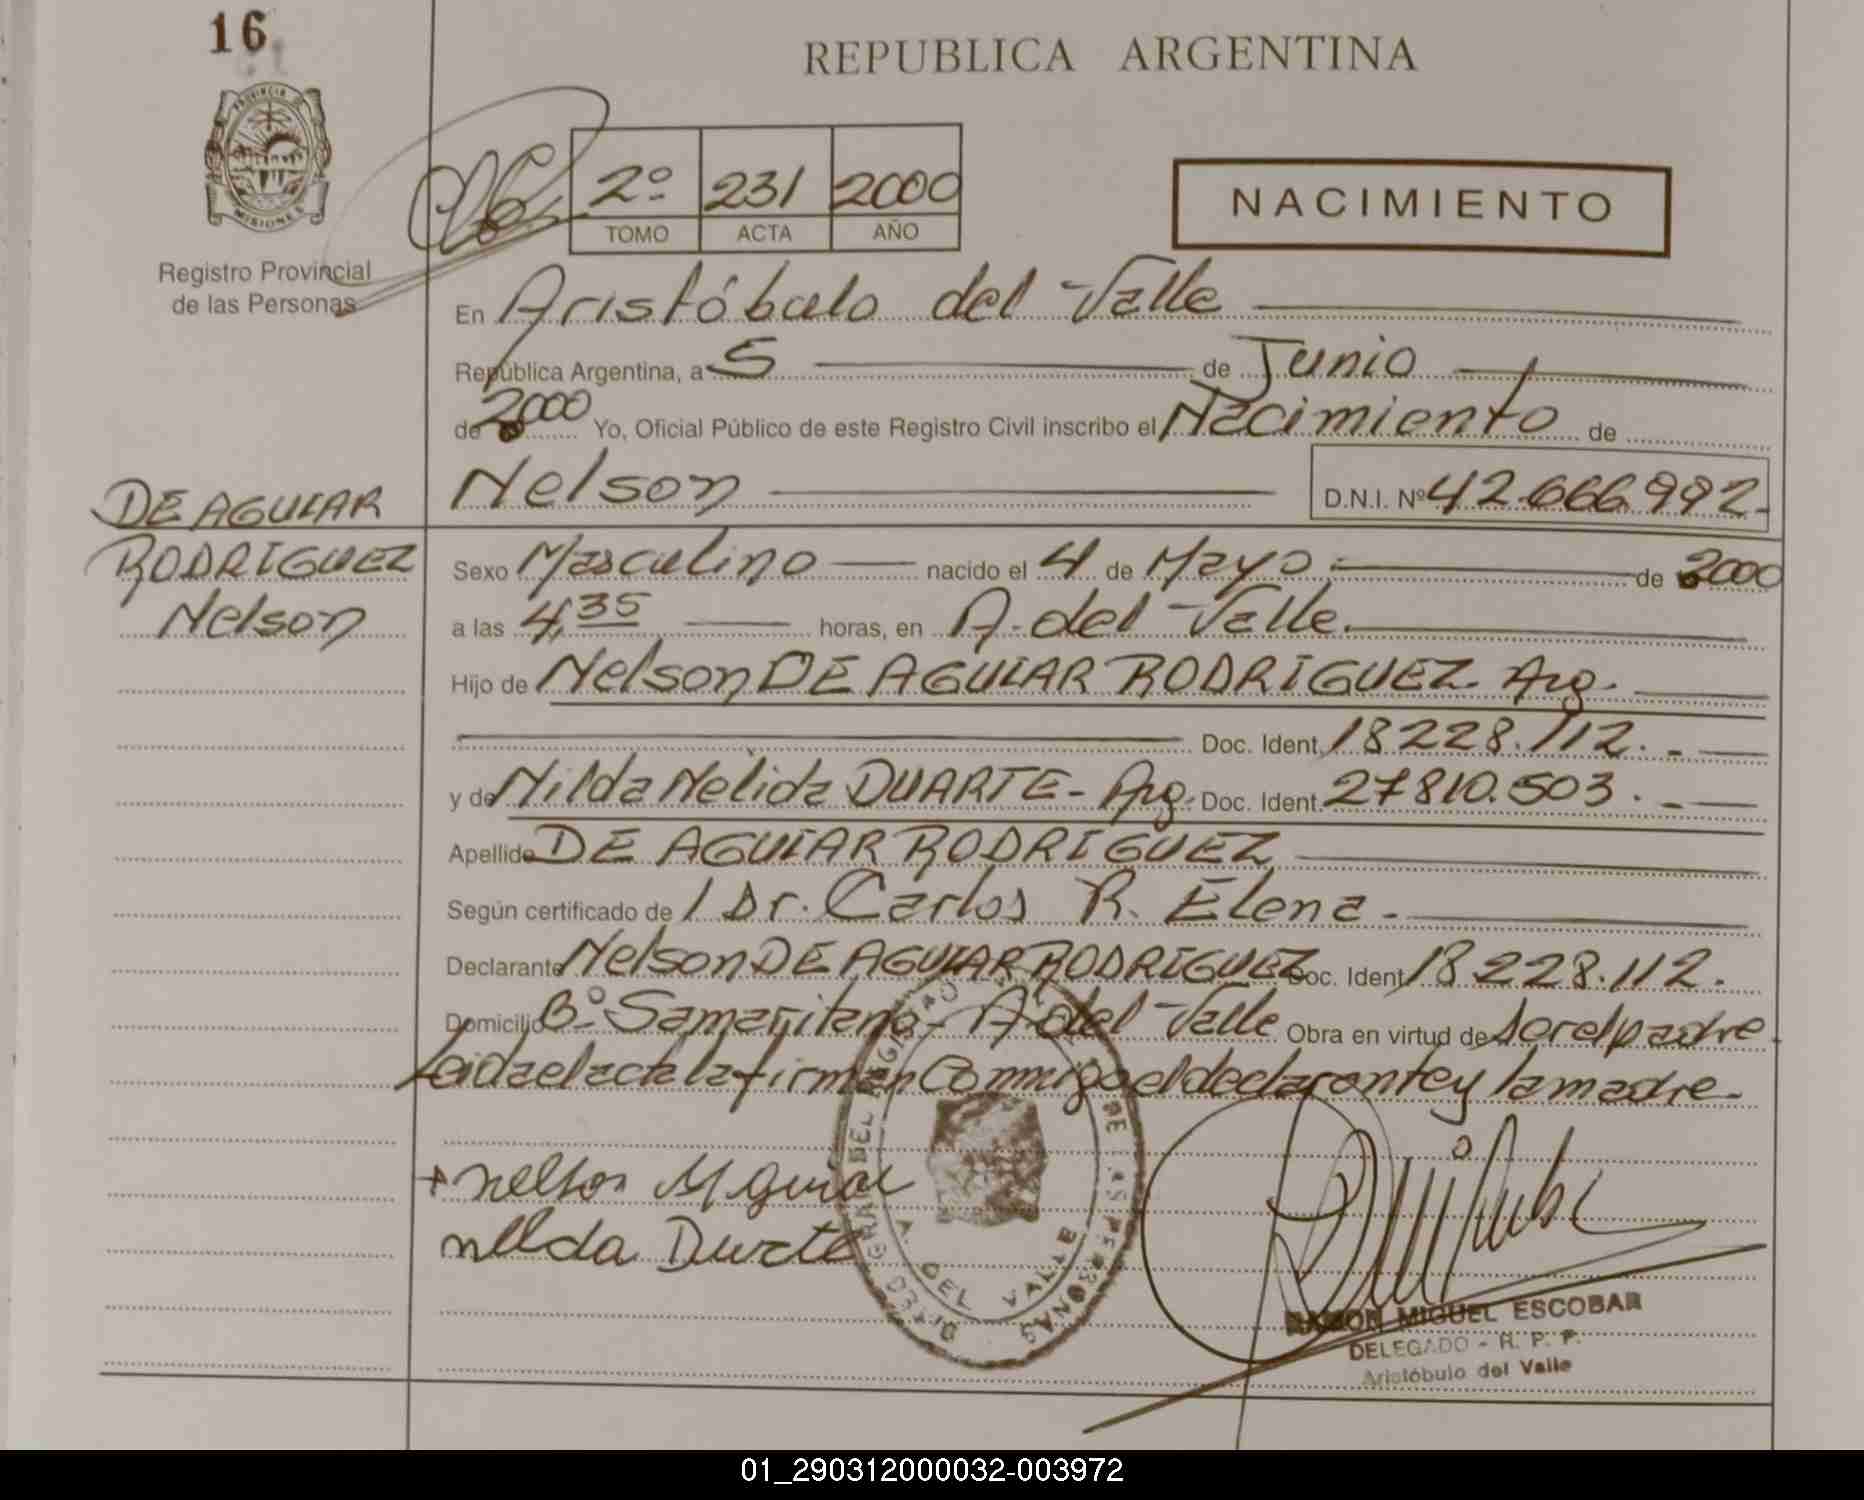 16
REPUBLICA ARGENTINA
PROVINCIA DE
MISIONES
Registro Provincial
de las Personas
2º 231 2000
TOMO ACTA AÑO
NACIMIENTO
En Aristóbulo del Valle
República Argentina, a 5 de Junio
de 2000 Yo, Oficial Público de este Registro Civil inscribo el Nacimiento de
Nelson D.N.I. Nº 42.666.992.-
DE AGUIAR
RODRIGUEZ
Nelson
Sexo Masculino nacido el 4 de Mayo de 2000
a las 4,35 horas, en A. del Valle.
Hijo de Nelson DE AGUIAR RODRIGUEZ. Arg.
Doc. Ident. 18.228.112.-
y de Nilda Nélida DUARTE - Arg. Doc. Ident. 27810.503.-
Apellido DE AGUIAR RODRIGUEZ
Según certificado de l Dr. Carlos R. Elena.
Declarante Nelson DE AGUIAR RODRIGUEZ Doc. Ident. 18.228.112.
Domicilio Bº Samaritano - A. del Valle Obra en virtud de ser el padre.
Leida el acta la firman Conmigo el declarante y la madre.
nelson Aguiar
nilda Duarte
A DEL VALLE
RAMON MIGUEL ESCOBAR
DELEGADO - R. P. P.
Aristóbulo del Valle
01_290312000032-003972